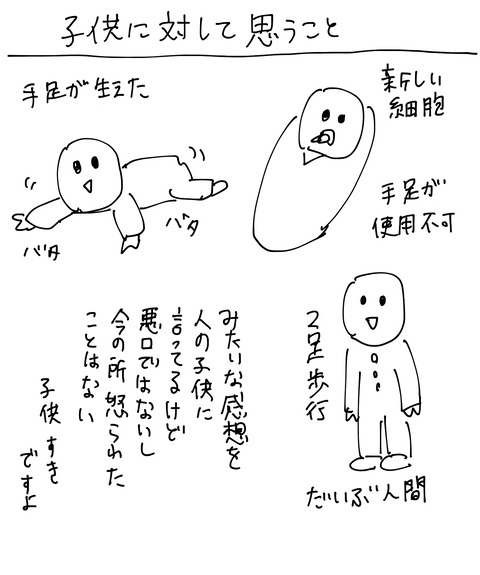 子供に対して思うこと
新しい
細胞
手足が
使用不可
手足が生えた
バタ
バタ
2足歩行
だいぶ人間
みたいな感想を
人の子供に
言ってるけど
悪口ではないし
今の所怒られた
ことはない
子供すき
ですよ